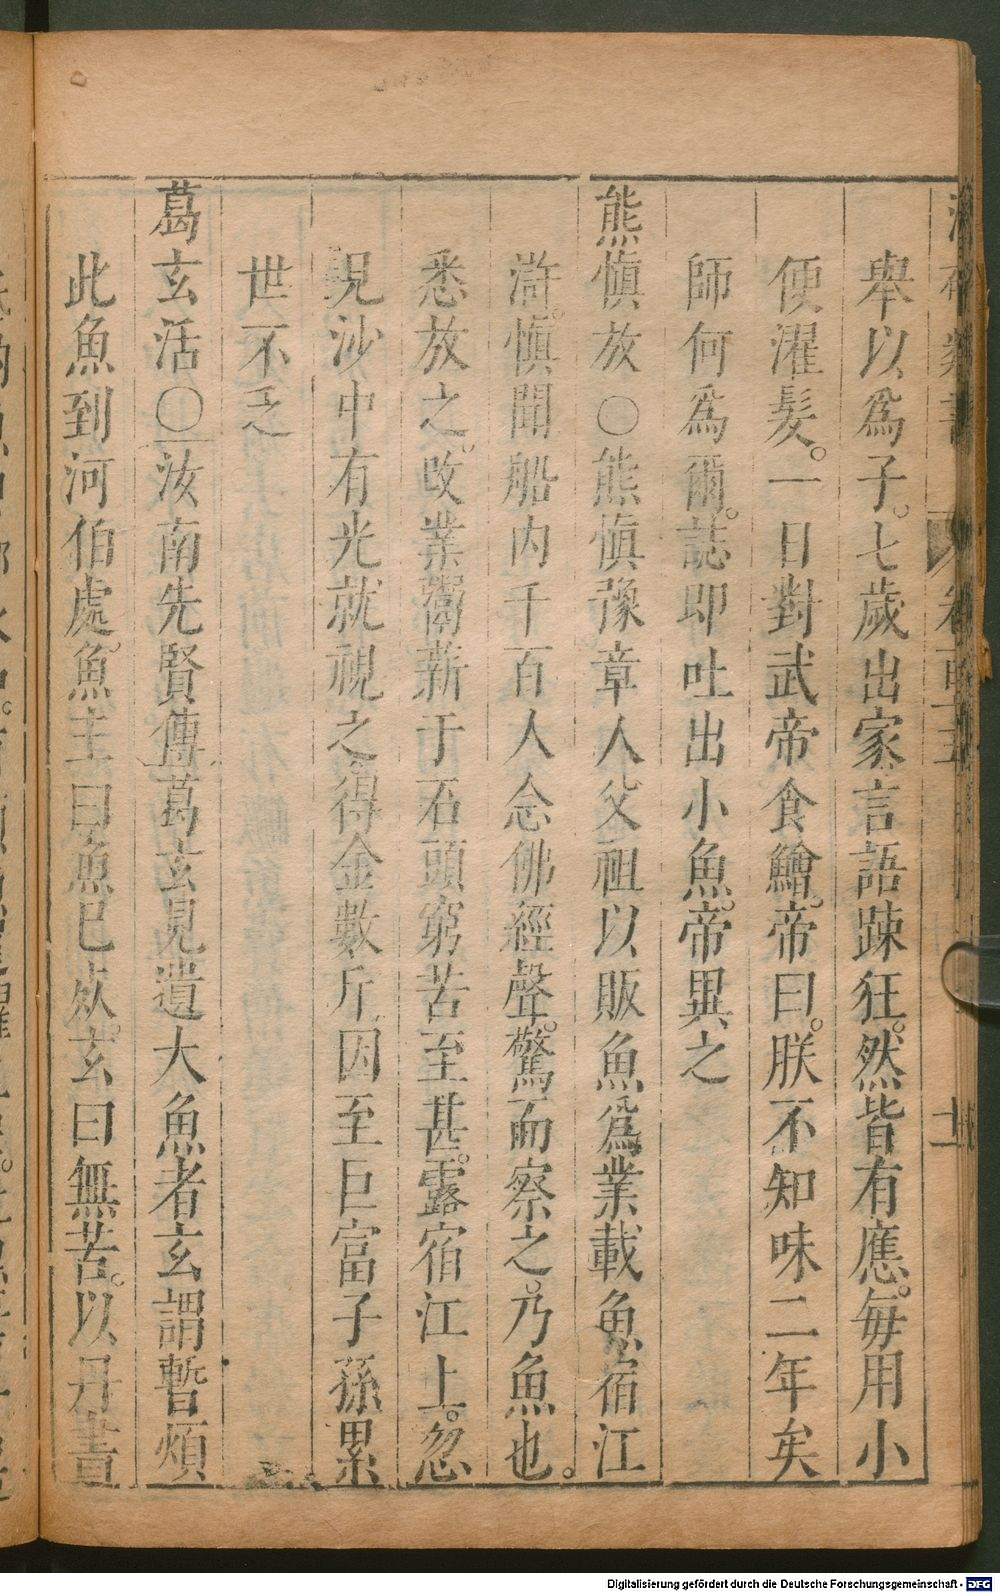 舉以爲子。七歲出家言語踈狂。然皆有應。每用小
便濯髮。一日對武帝食鱠。帝曰。朕不知味二年矣
師何爲爾。誌即吐出小魚。帝異之
熊愼放〇熊愼豫章人父祖以販魚爲業載魚宿江
滸。愼聞船内千百人念佛經聲。驚而察之。乃魚也。
悉放之。改業鬻薪于石頭窮苦至甚。露宿江上。忽
見沙中有光就視之得金數斤因至巨富子孫累
世不乏
葛玄活〇汝南先賢傳葛玄見遺大魚者玄謂暫煩
此魚到河伯處。魚主曰魚已死。玄曰無苦。以丹書
Digitalisierung gefördert durch die Deutsche Forschungsgemeinschaft - DFG